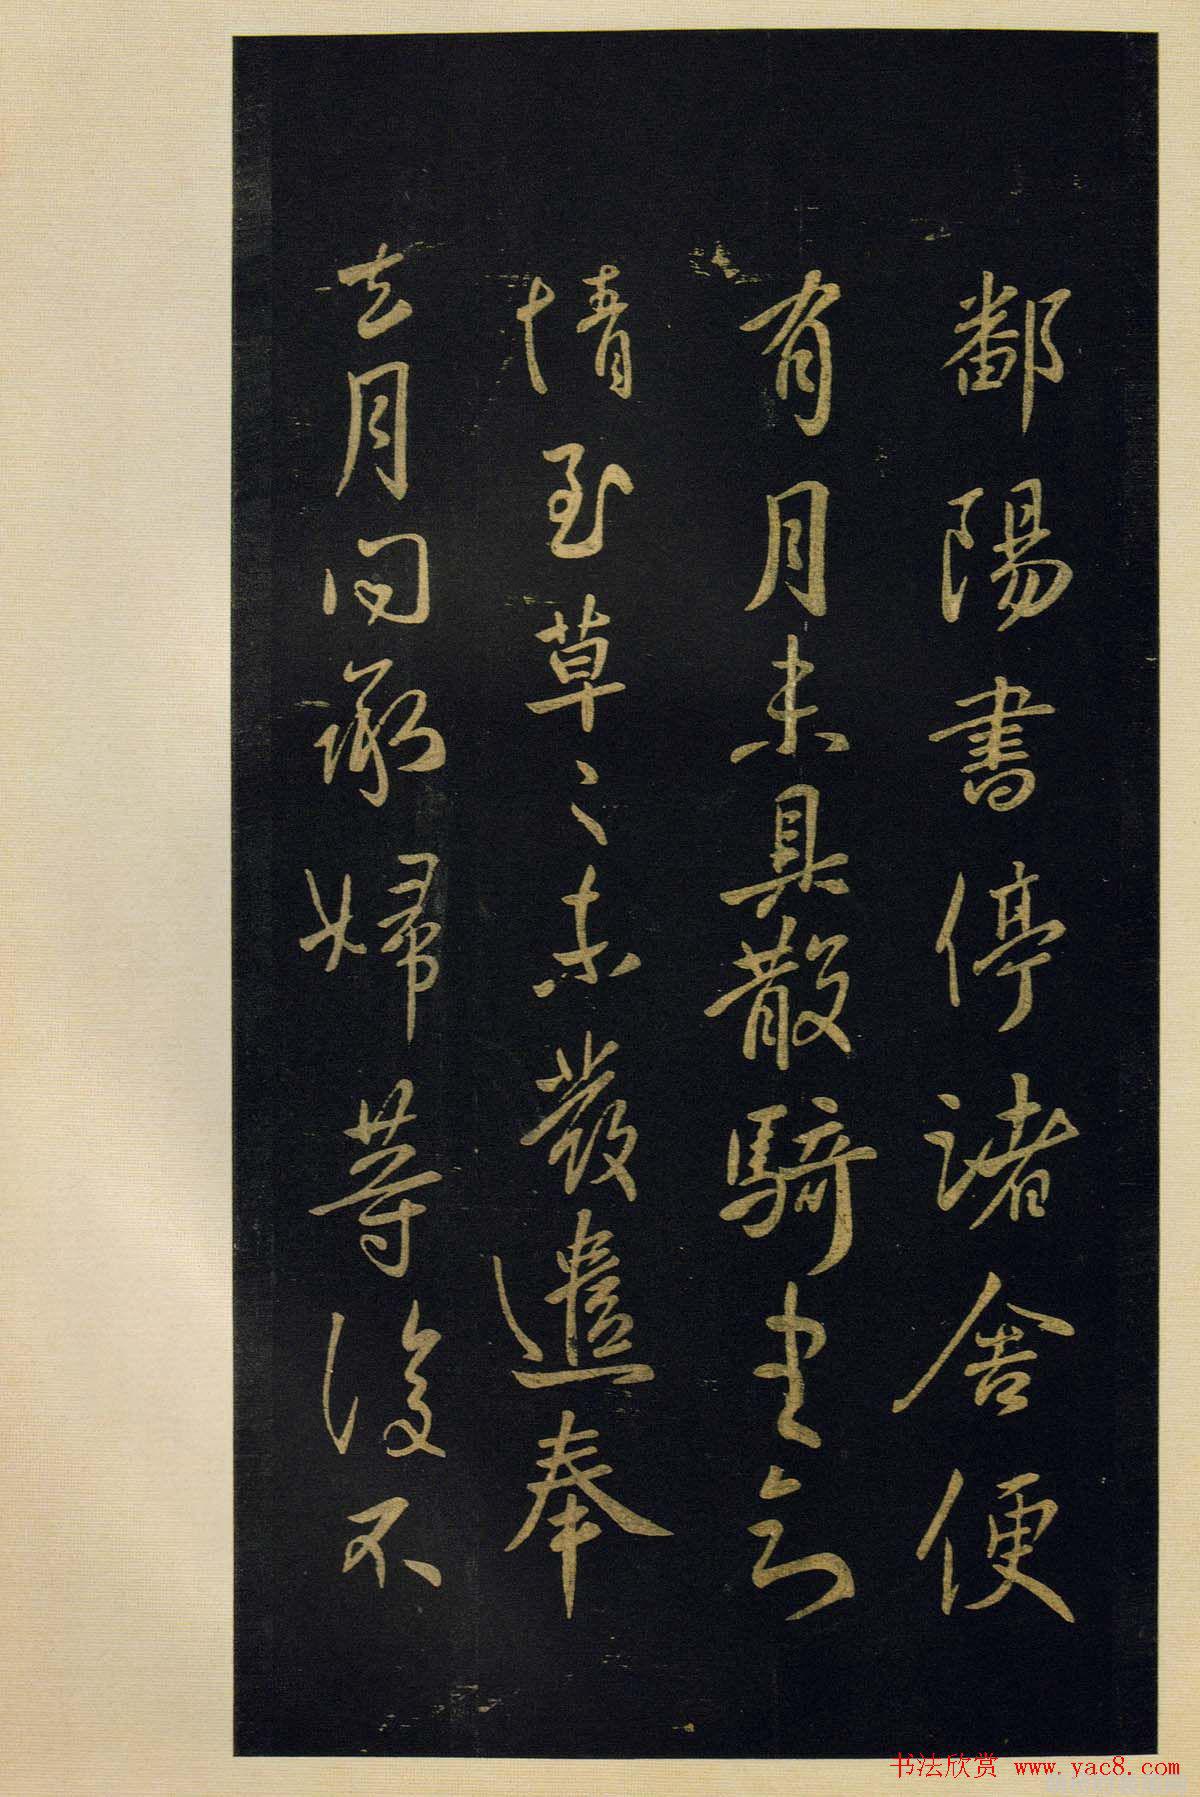 鄱陽書停諸舍便
有月未具散騎書
情至草〻未發遣奉
去月問承婦等復不
书法欣赏 www.yac8.com